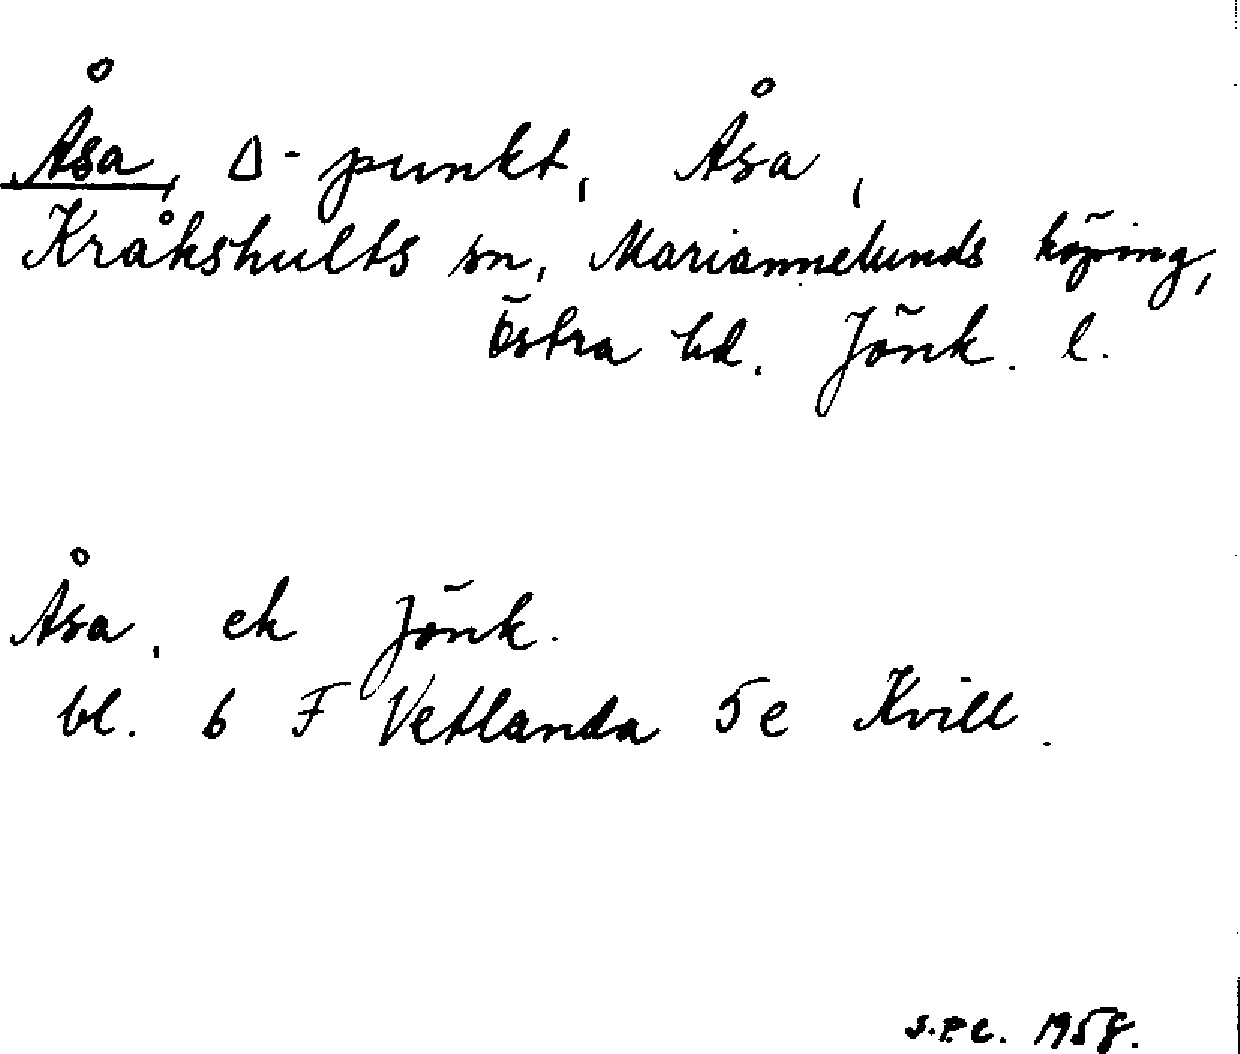 Åsa, Δ-punkt, Åsa,
Kråkshults sn, Mariannelunds köping,
Östra hd. Jönk. l.
Åsa, ek Jönk.
bl. 6 F Vetlanda 5e Kvill.
S.P.C. 1958.